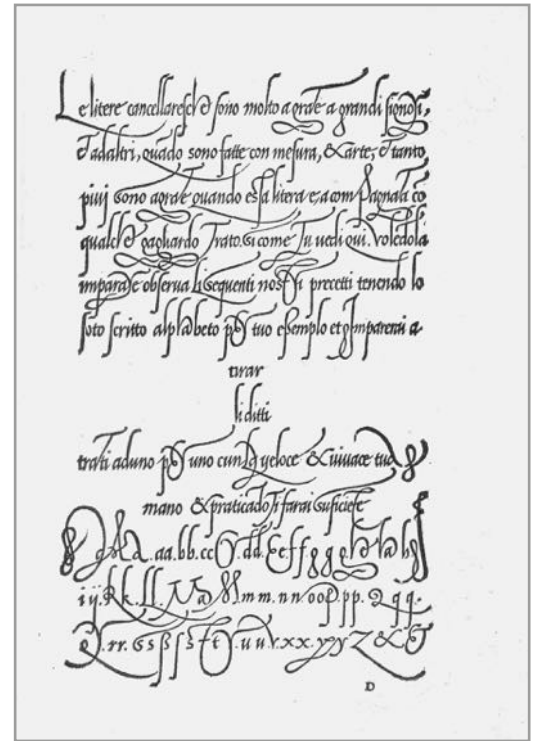 Le litere cancellaresche sono molto agrate a grandi signori,
& ad altri, quãdo sono fatte con mesura, & arte, & tanto
piuj sono agrate quando essa litera e, acompagnata cõ
qualche gagliardo Trato. Si come Tu uedi qui. Volẽdola
imparare obserua li sequenti nostri precetti tenendo lo
soto scritto alphabeto per tuo esemplo et Imparerai a
tirar
li ditti
trati aduno per uno cun la veloce & uiuace tua
mano & praticãdo Ti farai suficiẽte
.aa.bb.cc.dd.Ee.ff.g g
i ij.kk.ll.M m.m.n.n.oo.p.pp.Q qq.
.rr.G s ß ſ ſ .uu v.xx.yy Z &
D